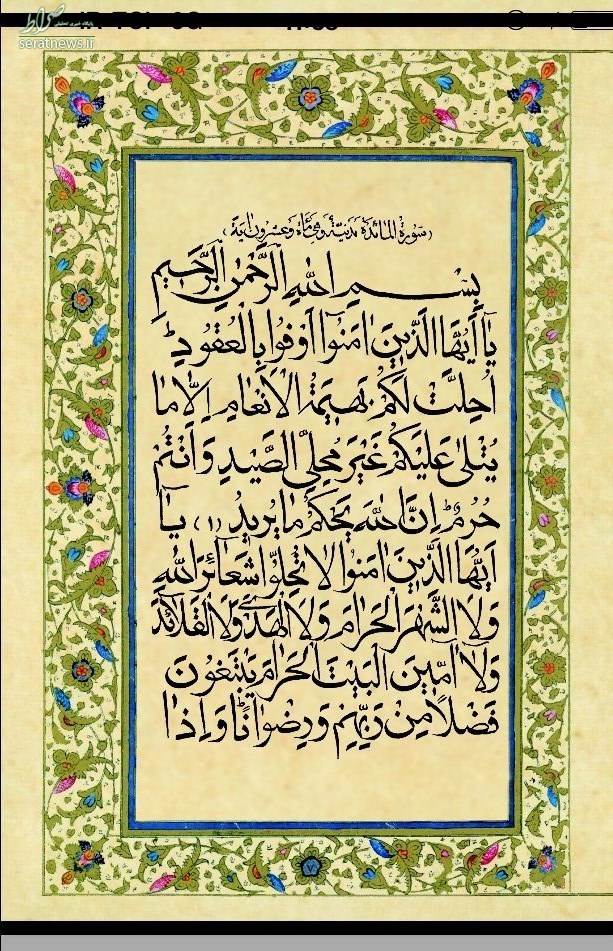 صراط
پایگاه خبری تحلیلی
seratnews.ir
(سُورَةُ المَائِدَة مَدَنِيَّةٌ وَهِيَ مِائَةٌ وَعِشْرُونَ اٰيَةً)
بِسْمِ اللّٰهِ الرَّحْمٰنِ الرَّحِيمِ
يَآ أَيُّهَا الَّذِينَ اٰمَنُوٓا اَوْفُوا بِالْعُقُودِ ۖ
اُحِلَّتْ لَكُمْ بَهِيمَةُ الْاَنْعَامِ اِلَّا مَا
يُتْلٰى عَلَيْكُمْ غَيْرَ مُحِلِّي الصَّيْدِ وَاَنْتُمْ
حُرُمٌ ۗ اِنَّ اللّٰهَ يَحْكُمُ مَا يُرِيدُ (۱) يَآ
اَيُّهَا الَّذِينَ اٰمَنُوا لَا تُحِلُّوا شَعَآئِرَ اللّٰهِ
وَلَا الشَّهْرَ الْحَرَامَ وَلَا الْهَدْيَ وَلَا الْقَلَآئِدَ
وَلَآ اٰمِّينَ الْبَيْتَ الْحَرَامَ يَبْتَغُونَ
فَضْلًا مِنْ رَبِّهِمْ وَرِضْوَانًا ۚ وَاِذَا